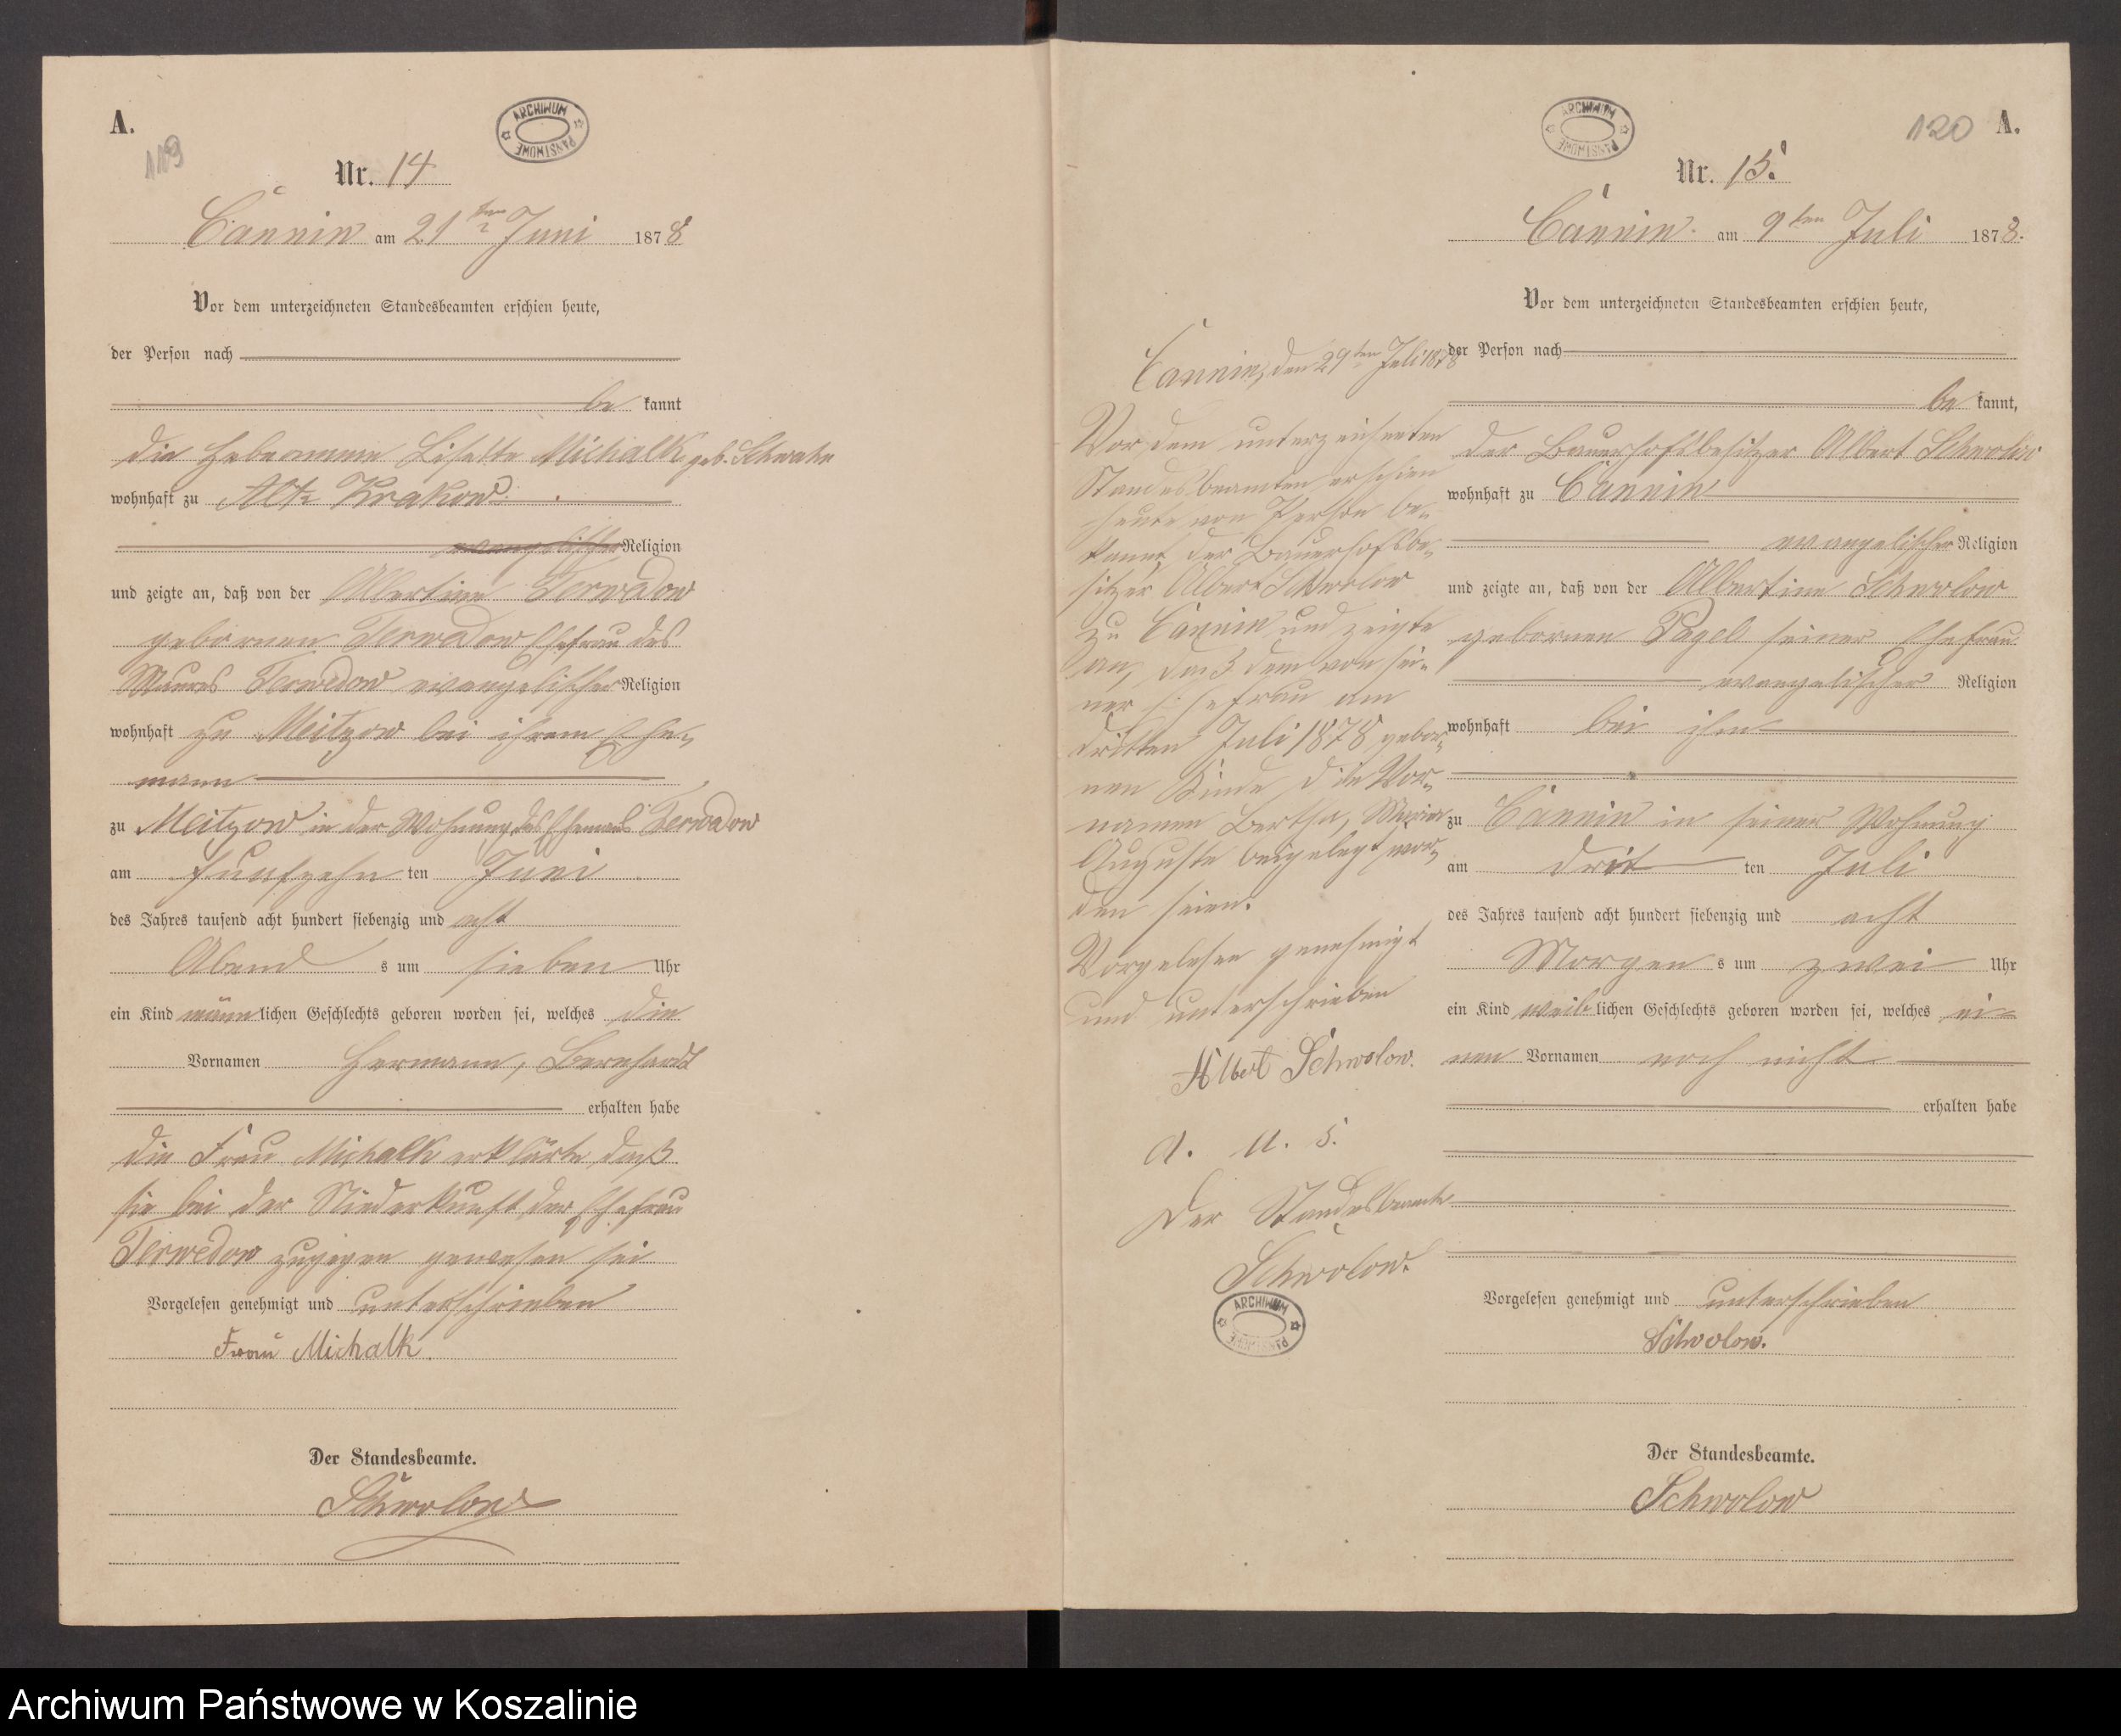 A.
119
ARCHIWUM PAŃSTWOWE
Nr. 14
Cannin am 21ten Juni 1878
Vor dem unterzeichneten Standesbeamten erschien heute,
der Person nach
be kannt
die Hebeamme Lisette Michalk geb. Schwahn
wohnhaft zu Alt Krakow
evangelischer Religion
und zeigte an, daß von der Albertine Terwedow
gebornen Terwedow Ehefrau des
Terwedow evangelischer Religion
wohnhaft zu Meitzow bei ihrem Ehe-
mann
zu Meitzow in der Wohnung des Ehemans Terwedow
am funfzehn ten Juni
des Jahres tausend acht hundert siebenzig und acht
Abend s um sieben Uhr
ein Kind männ lichen Geschlechts geboren worden sei, welches die
Vornamen Hermann, Bernhardt
erhalten habe
die Frau Michalk erklärte daß
sie bei der Niederkunft der Ehefrau
Terwedow zugegen gewesen sei
Vorgelesen genehmigt und unterschrieben
Frau Michalk.
Der Standesbeamte.
Schwolow
120 A.
ARCHIWUM PAŃSTWOWE
Nr. 15.
Cannin am 9ten Juli 1878.
Vor dem unterzeichneten Standesbeamten erschien heute,
der Person nach
be kannt,
der Bauerhofsbesitzer Albert Schwolow
wohnhaft zu Cannin
evangelischer Religion
und zeigte an, daß von der Albertine Schwolow
gebornen Pagel seiner Ehefrau
evangelischer Religion
wohnhaft bei ihm
zu Cannin in seiner Wohnung
am drit ten Juli
des Jahres tausend acht hundert siebenzig und acht
Morgen s um zwei Uhr
ein Kind weib lichen Geschlechts geboren worden sei, welches ei-
nen Vornamen noch nicht
erhalten habe
Vorgelesen genehmigt und unterschrieben
Schwolow.
Der Standesbeamte.
Schwolow
Cannin, den 29ten Juli 1878
Vor dem unterzeichneten
Standesbeamten erschien
heute von Person be-
kannt der Bauerhofsbe-
sitzer Albert Schwolow
zu Cannin und zeigte
an, daß dem von sei-
ner Ehefrau am
dritten Juli 1878 gebor-
nen Kinde die Vor-
namen Bertha, Marie
Auguste beigelegt wor-
den seien.
Vorgelesen genehmigt
und unterschrieben
Albert Schwolow.
a. u. s.
Der Standesbeamte
Schwolow.
ARCHIWUM PAŃSTWOWE
Archiwum Państwowe w Koszalinie